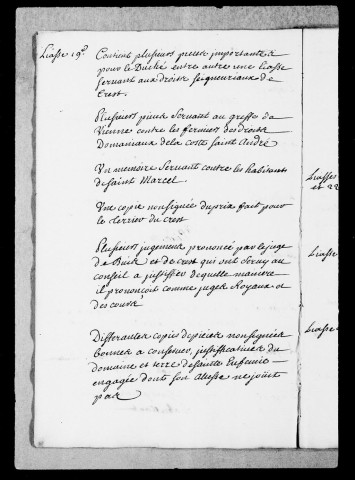 Liasse 19e Contient plusieurs pieces importantes
pour le Duché entre autre une liasse
servant aux droits seigneuriaux de
Crest.
Plusieurs pieces servant au greffe de
Vienne contre les fermiers des droits
Domaniaux de la coste saint André
Un memoire servant contre les habitants
de saint Marcel
Une copie non signée du prix fait pour
le terrier du crest
Plusieurs jugement prononcé par le juge
de Buis et de crest qui ont servy au
conseil a justiffier de quelle maniere
il prononçoit comme juges Royaux et
des cours
Differantes copies de pieces non signées
bonnes a conserver, justifficatives du
domaine et terre de sainte Eufemie
engagée dont son altesse ne jouit
pas
Liasses
et 22
Liasse
Liasse